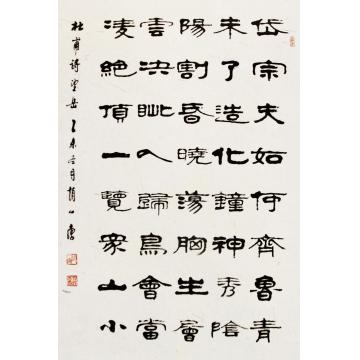 岱宗夫如何齊魯青
未了造化鐘神秀陰
陽割昏曉蕩胸生層
雲決眦入歸鳥會當
凌絕頂一覽眾山小
杜甫詩望岳乙未